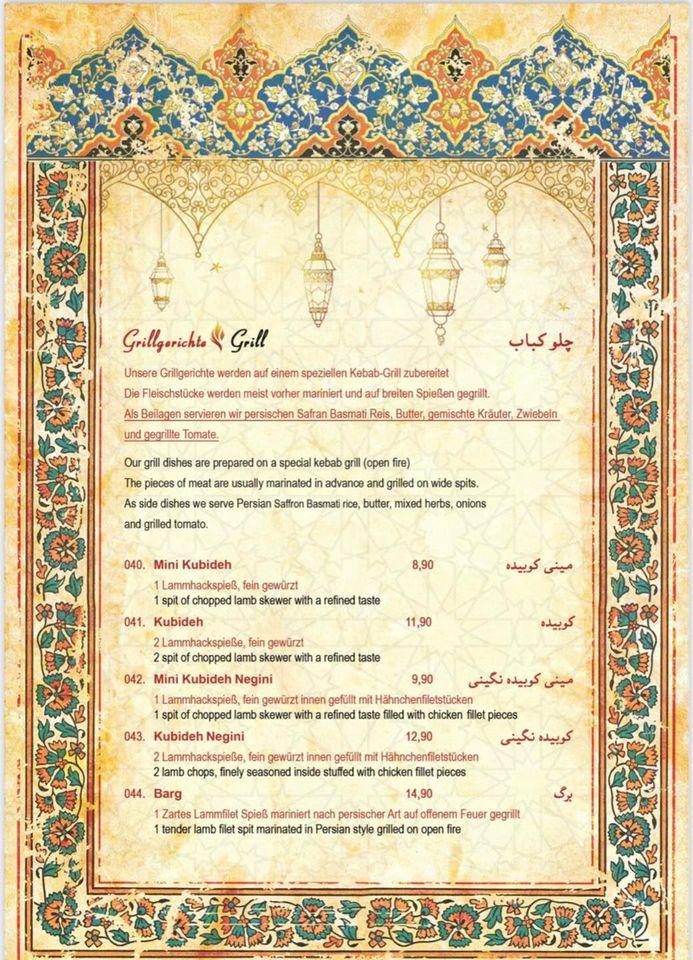 Grillgerichte Grill چلو کباب
Unsere Grillgerichte werden auf einem speziellen Kebab-Grill zubereitet
Die Fleischstücke werden meist vorher mariniert und auf breiten Spießen gegrillt.
Als Beilagen servieren wir persischen Safran Basmati Reis, Butter, gemischte Kräuter, Zwiebeln
und gegrillte Tomate.
Our grill dishes are prepared on a special kebab grill (open fire)
The pieces of meat are usually marinated in advance and grilled on wide spits.
As side dishes we serve Persian Saffron Basmati rice, butter, mixed herbs, onions
and grilled tomato.
040. Mini Kubideh 8,90 مینی کوبیده
1 Lammhackspieß, fein gewürzt
1 spit of chopped lamb skewer with a refined taste
041. Kubideh 11,90 کوبیده
2 Lammhackspieße, fein gewürzt
2 spit of chopped lamb skewer with a refined taste
042. Mini Kubideh Negini 9,90 مینی کوبیده نگینی
1 Lammhackspieß, fein gewürzt innen gefüllt mit Hähnchenfiletstücken
1 spit of chopped lamb skewer with a refined taste filled with chicken fillet pieces
043. Kubideh Negini 12,90 کوبیده نگینی
2 Lammhackspieße, fein gewürzt innen gefüllt mit Hähnchenfiletstücken
2 lamb chops, finely seasoned inside stuffed with chicken fillet pieces
044. Barg 14,90 برگ
1 Zartes Lammfilet Spieß mariniert nach persischer Art auf offenem Feuer gegrillt
1 tender lamb filet spit marinated in Persian style grilled on open fire